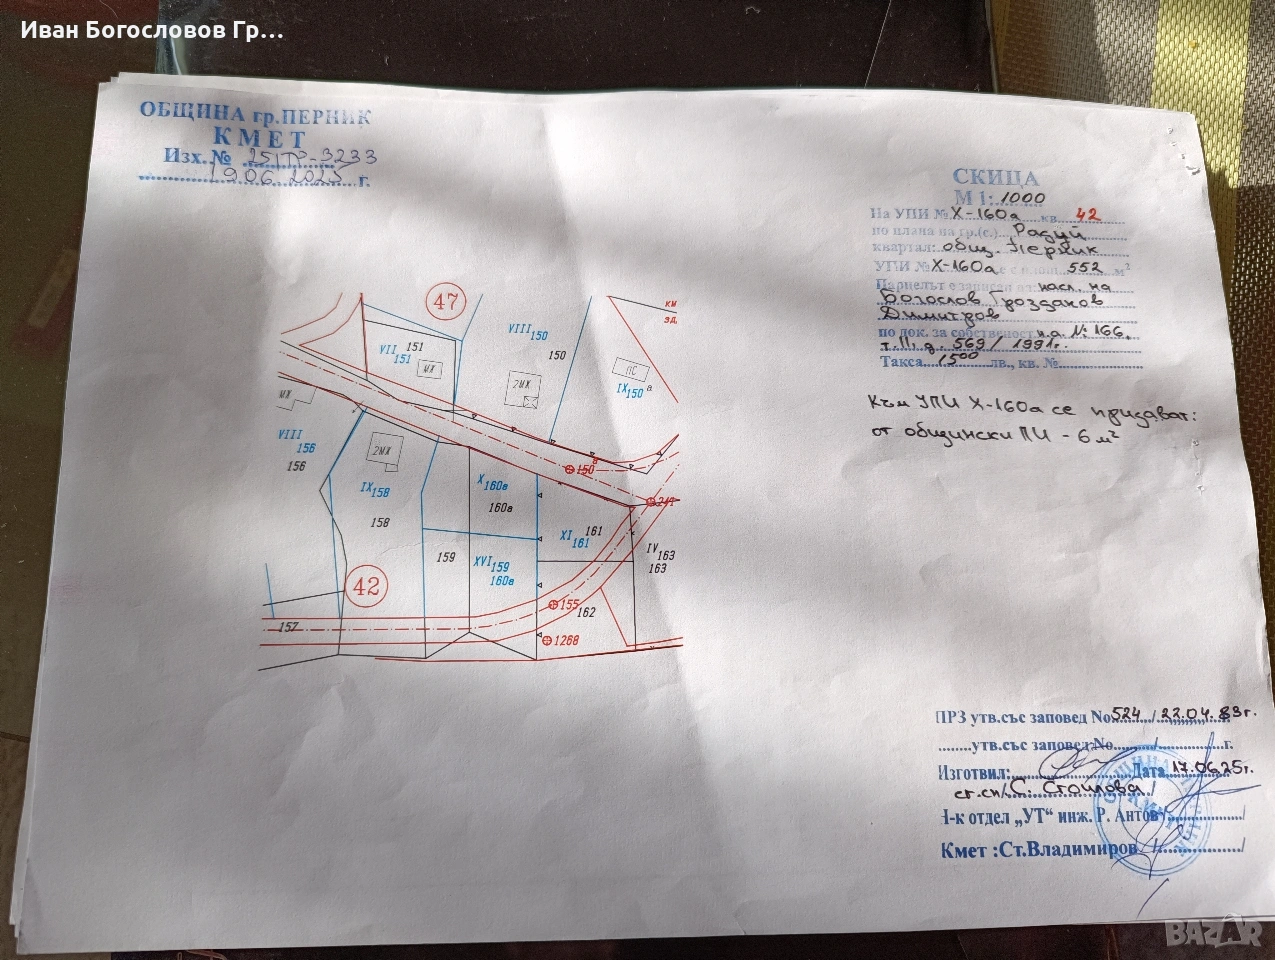 Иван Богословов Гр…
ОБЩИНА гр.ПЕРНИК
КМЕТ
Изх. № 25ITP-3233
19.06.2025 г.
СКИЦА
М 1: 1000
На УПИ № X-160а кв. 42
по плана на гр.(с.) Радуй
квартал: общ. Перник
УПИ № X-160а с площ 552 м²
Парцелът е записан насл. на
Богослов Грозданов
Димитров
по док. за собственост н.а. № 166,
т. III, д. 569 / 1991г.
Такса 15⁰⁰ лв., кв. №
Към УПИ X-160а се придават:
от общински ПИ - 6 м²
47
км
зд.
VIII 150
150
VII 151
151
МЖ
2МЖ
ПС
IX 150 а
МЖ
VIII 156
156
2МЖ
IX 158
158
150
247
X 160а
160а
XI 161
161
IV 163
163
159
XVI 159
160а
42
155
162
157
1268
ПРЗ утв.със заповед No 524 / 22.04.83г.
утв.със заповед No / г.
Изготвил: Дата 17.06.25г.
ст.сп/С. Стоилова/
Н-к отдел „УТ“ инж. Р. Антов / /
Кмет :Ст.Владимиров / /
BAZAR